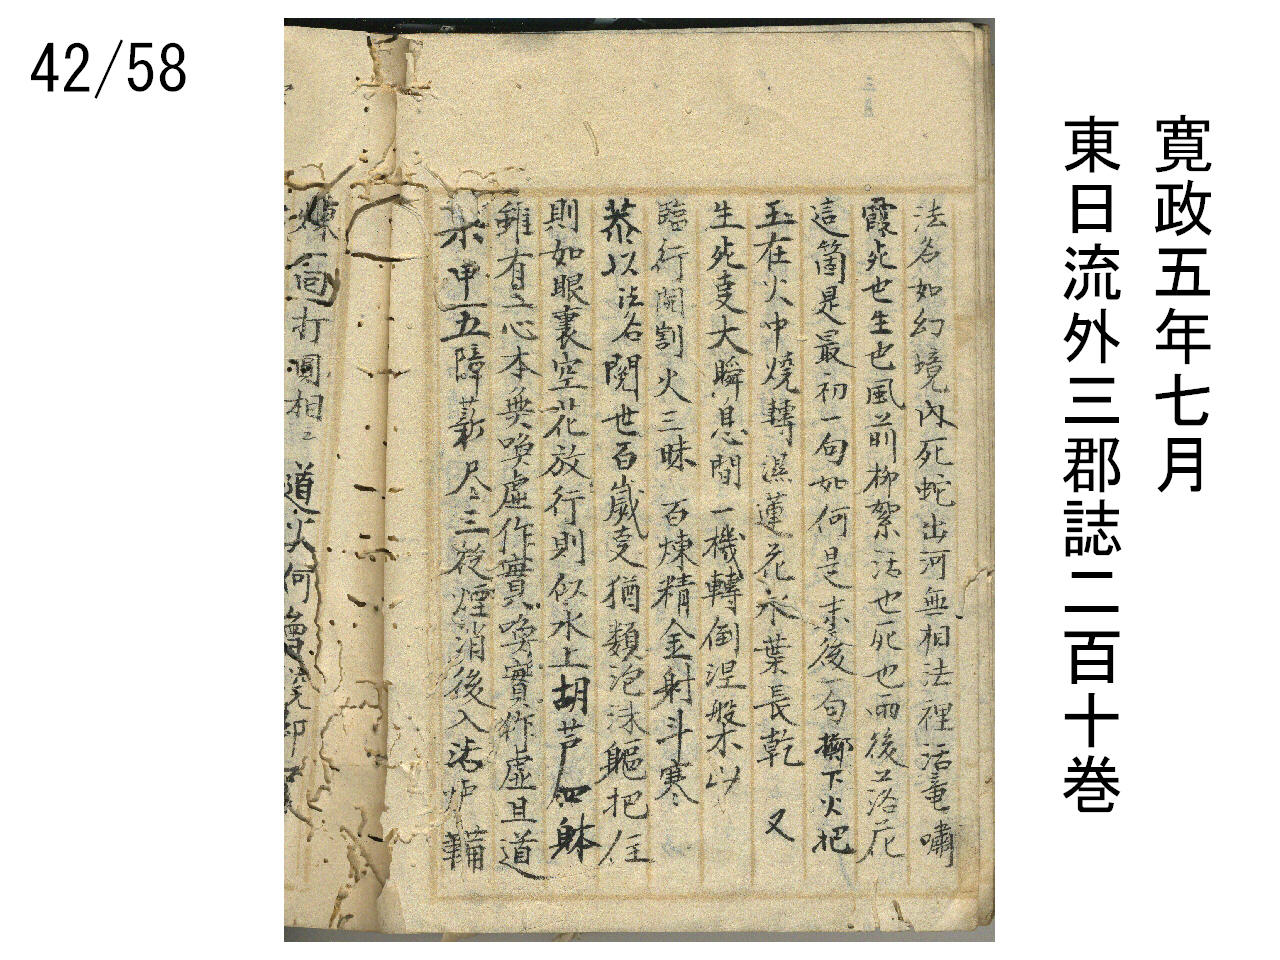 42/58
寛政五年七月
東日流外三郡誌二百十巻
法名如幻境内死蛇出河無相法裡活竜嘯
霞死也生也風前柳絮活也死也雨後落花
這箇是最初一句如何是末後一句擲下火把
玉在火中燒轉濕蓮花水葉長乾 又
生死吏大瞬息間一機轉倒涅般木以
臨行開割火三昧 百煉精金射斗寒
恭以法名閱世百歲吏猶類泡沫軀把住
則如眼裏空花放行則似水上胡芦四躰
雖有二心本無喚虛作實喚實作虛且道
甲五障薪尺三從煙消後入法炉鞴
煉 打圓相 道火何